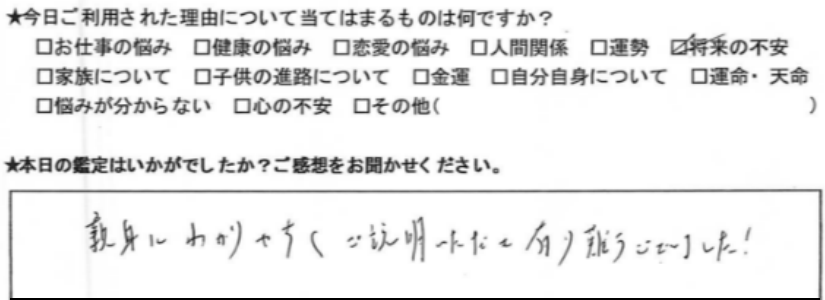 ★今日ご利用された理由について当てはまるものは何ですか？
□お仕事の悩み □健康の悩み □恋愛の悩み □人間関係 □運勢 ☑将来の不安
□家族について □子供の進路について □金運 □自分自身について □運命・天命
□悩みが分からない □心の不安 □その他( )
★本日の鑑定はいかがでしたか？ご感想をお聞かせください。
親身にわかりやすくご説明いただき有り難うございました!